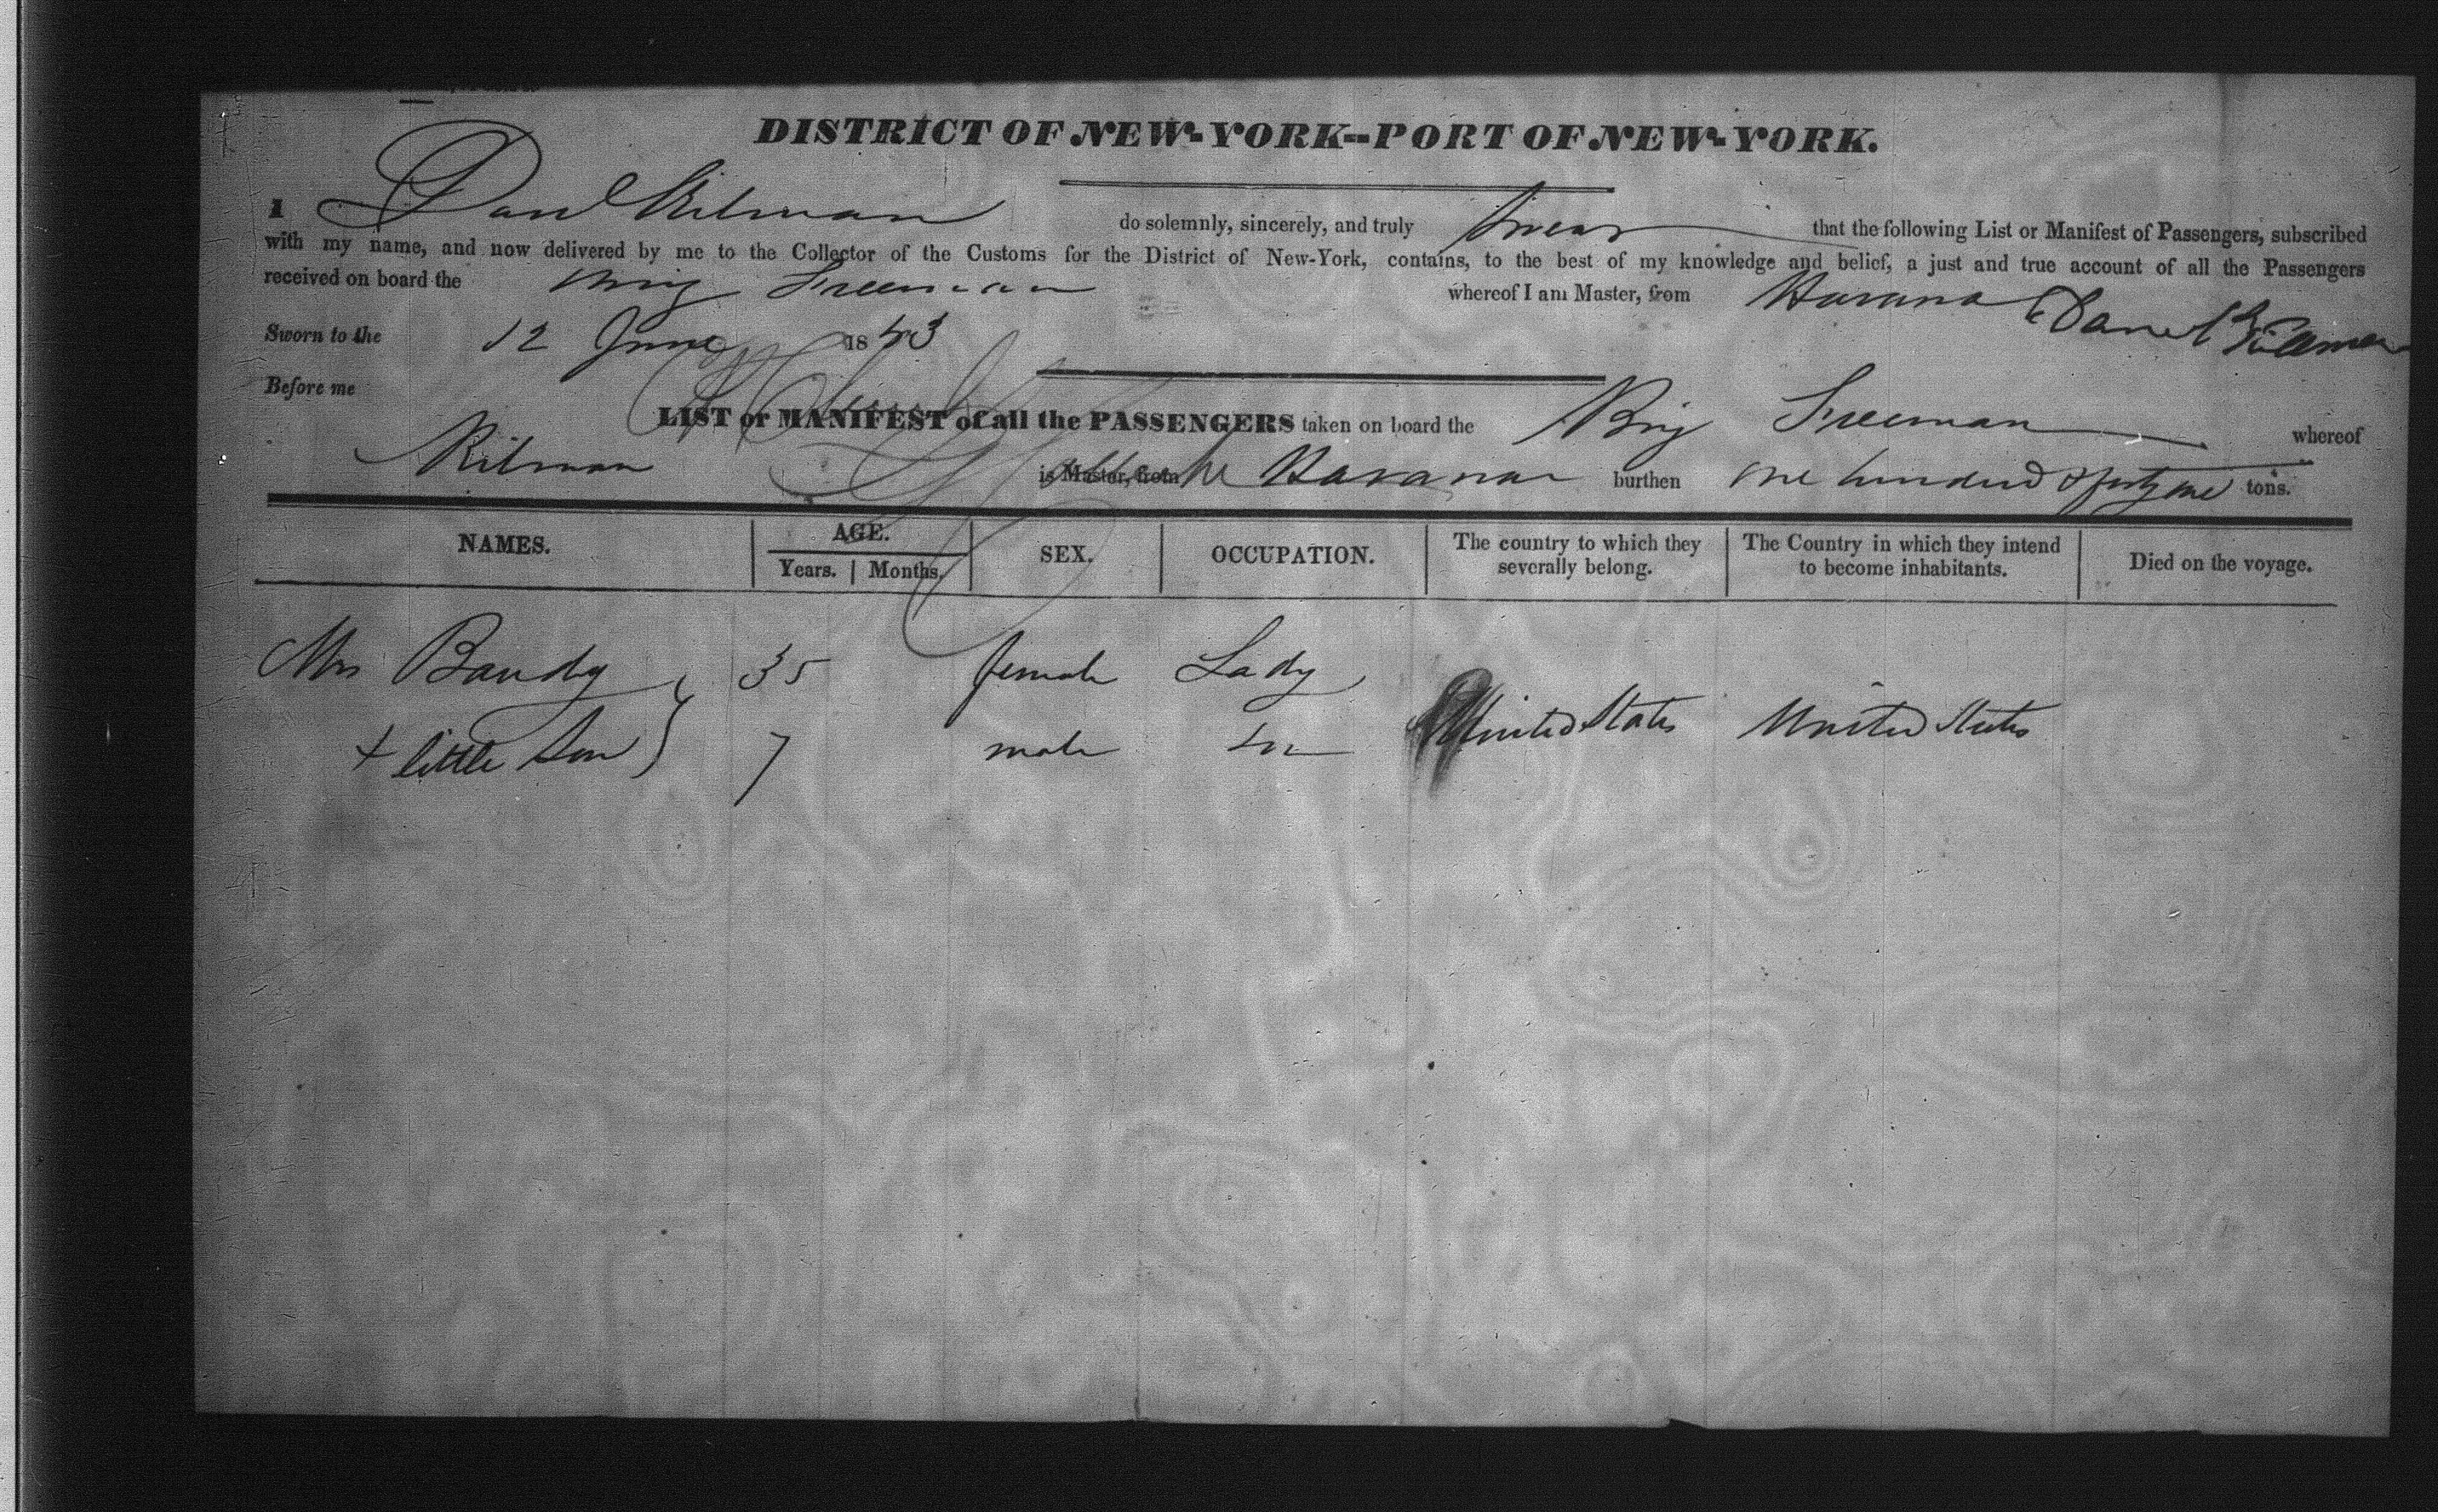 DISTRICT OF NEW-YORK--PORT OF NEW-YORK.
I Danl Kilman do solemnly, sincerely, and truly swear that the following List or Manifest of Passengers, subscribed
with my name, and now delivered by me to the Collector of the Customs for the District of New-York, contains, to the best of my knowledge and belief, a just and true account of all the Passengers
received on board the Brig Freeman whereof I am Master, from Havana
Daniel Killman
Sworn to the 12 June 1843
Before me
LIST or MANIFEST of all the PASSENGERS taken on board the Brig Freeman whereof
Kilman is Master, from Havana burthen One hundred & forty one tons.
NAMES. AGE. SEX. OCCUPATION. The country to which they severally belong. The Country in which they intend to become inhabitants. Died on the voyage.
Years. Months.
Mrs Bandy 35 female Lady
United States United States
+ little Son 7 male